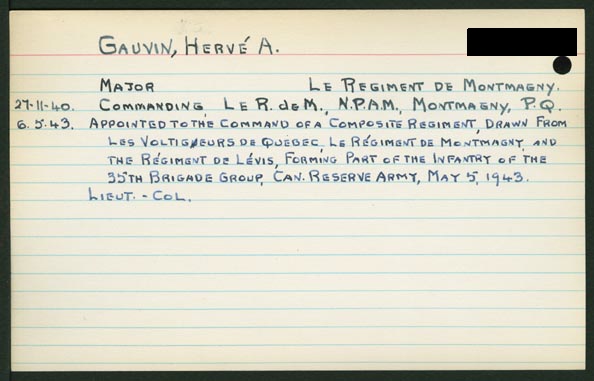 GAUVIN, HERVÉ A.
MAJOR LE REGIMENT DE MONTMAGNY.
27-11-40. COMMANDING, LE R. de M., N.P.A.M., MONTMAGNY, P.Q.
6.5.43. APPOINTED TO THE COMMAND OF A COMPOSITE REGIMENT, DRAWN FROM
LES VOLTIGEURS DE QUÉBEC, LE RÉGIMENT DE MONTMAGNY, AND
THE RÉGIMENT DE LÉVIS, FORMING PART OF THE INFANTRY OF THE
35TH BRIGADE GROUP, CAN. RESERVE ARMY, MAY 5, 1943.
LIEUT. - COL.